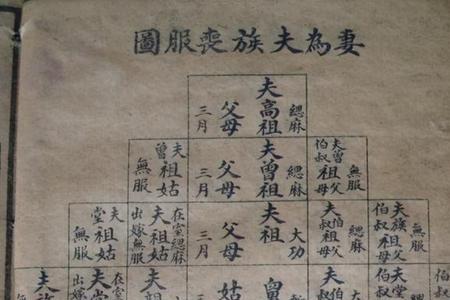 妻為夫族喪服圖
緦麻
夫高祖
父母
三月
無服
夫曾伯叔祖父母
緦麻
夫曾祖
父母
三月
夫曾祖姑
無服
無服
夫族伯叔祖父母
緦麻
夫伯叔祖父母
大功
夫祖
父母
三月
在室緦麻
夫祖姑
出嫁無服
夫堂祖姑
無服
夫堂
夫伯
舅
姑
夫親
在室
夫堂
夫族